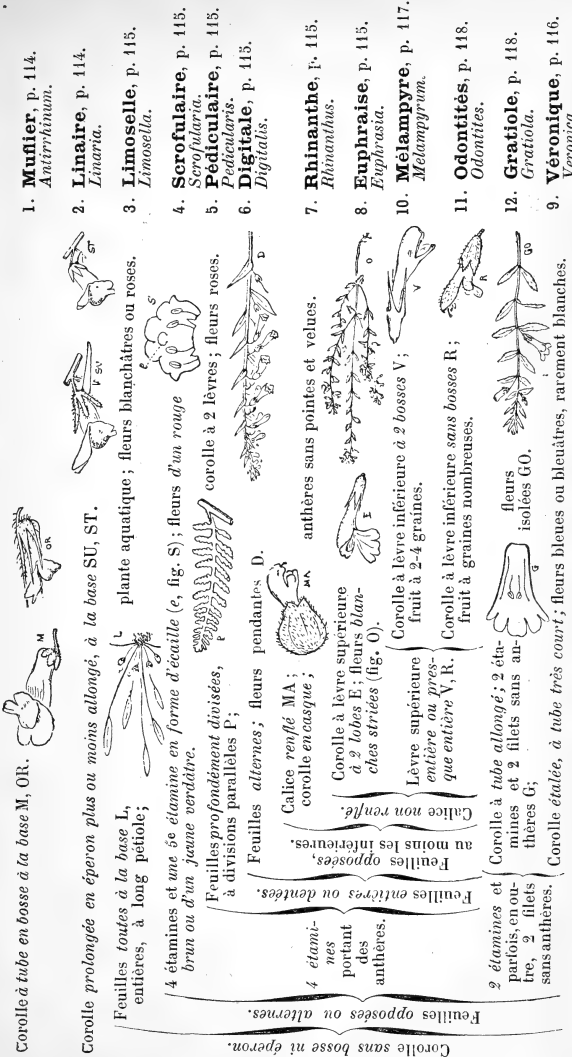 Corolle à tube en bosse à la base M, OR.
M
OR
1. Muflier, p. 114.
Antirrhinum.
Corolle prolongée en éperon plus ou moins allongé, à la base SU, ST.
SU
ST
2. Linaire, p. 114.
Linaria.
Corolle sans bosse ni éperon.
Feuilles toutes à la base L,
entières, à long pétiole;
L
plante aquatique; fleurs blanchâtres ou roses.
3. Limoselle, p. 115.
Limosella.
Feuilles opposées ou alternes.
4 étami-
nes
portant
des
anthères.
4 étamines et une 5e étamine en forme d'écaille (e, fig. S); fleurs d'un rouge
brun ou d'un jaune verdâtre.
e
S
4. Scrofulaire, p. 115.
Scrofularia.
Feuilles profondément divisées,
à divisions parallèles P;
P
corolle à 2 lèvres; fleurs roses.
5. Pédiculaire, p. 115.
Pedicularis.
Feuilles entières ou dentées.
Feuilles alternes; fleurs pendantes D.
D
6. Digitale, p. 115.
Digitalis.
Feuilles opposées,
au moins les inférieures.
Calice renflé MA;
corolle en casque;
MA
anthères sans pointes et velues.
7. Rhinanthe, p. 115.
Rhinanthus.
Calice non renflé.
Corolle à lèvre supérieure
à 2 lobes E; fleurs blan-
ches striées (fig. O).
E
O
8. Euphraise, p. 115.
Euphrasia.
Lèvre supérieure
entière ou pres-
que entière V, R.
Corolle à lèvre inférieure à 2 bosses V;
fruit à 2-4 graines.
V
10. Mélampyre, p. 117.
Melampyrum.
Corolle à lèvre inférieure sans bosses R;
fruit à graines nombreuses.
R
11. Odontitès, p. 118.
Odontites.
2 étamines et
parfois, en ou-
tre, 2 filets
sans anthères.
Corolle à tube allongé; 2 éta-
mines et 2 filets sans an-
thères G;
G
fleurs
isolées GO.
GO
12. Gratiole, p. 118.
Gratiola.
Corolle étalée, à tube très court; fleurs bleues ou bleuâtres, rarement blanches.
9. Véronique, p. 116.
Veronica.